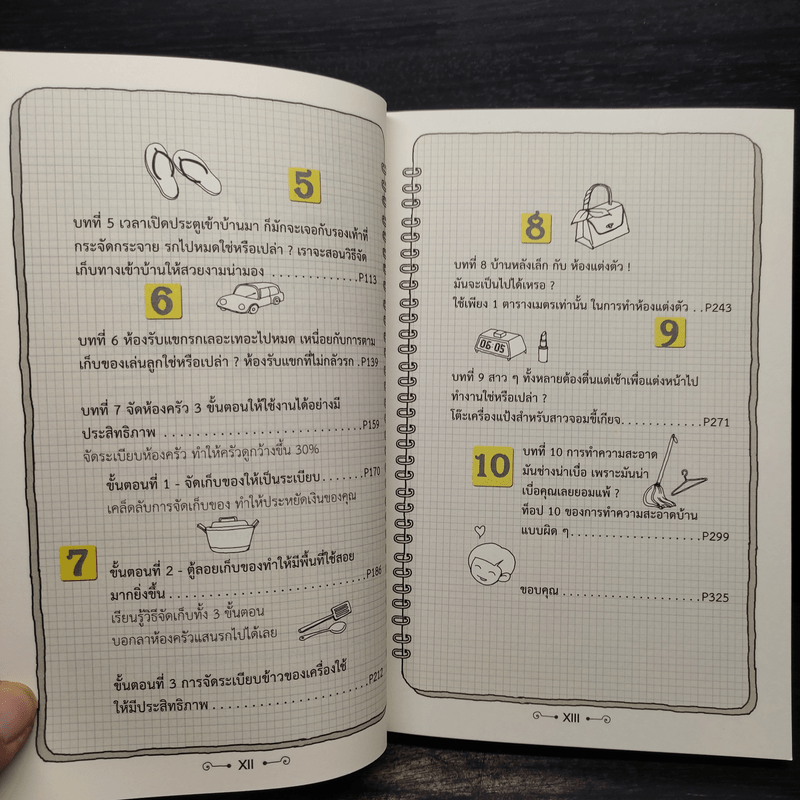 5
บทที่ 5 เวลาเปิดประตูเข้าบ้านมา ก็มักจะเจอกับรองเท้าที่
กระจัดกระจาย รกไปหมดใช่หรือเปล่า ? เราจะสอนวิธีจัด
เก็บทางเข้าบ้านให้สวยงามน่ามอง . . . . . . . . . . . . .P113
6
บทที่ 6 ห้องรับแขกรกเลอะเทอะไปหมด เหนื่อยกับการตาม
เก็บของเล่นลูกใช่หรือเปล่า ? ห้องรับแขกที่ไม่กลัวรก .P139
บทที่ 7 จัดห้องครัว 3 ขั้นตอนให้ใช้งานได้อย่างมี
ประสิทธิภาพ . . . . . . . . . . . . . . . . . . . . . . . . .P159
จัดระเบียบห้องครัว ทำให้ครัวดูกว้างขึ้น 30%
ขั้นตอนที่ 1 - จัดเก็บของให้เป็นระเบียบ. . . . . . . .P170
เคล็ดลับการจัดเก็บของ ทำให้ประหยัดเงินของคุณ
7
ขั้นตอนที่ 2 - ตู้ลอยเก็บของทำให้มีพื้นที่ใช้สอย
มากยิ่งขึ้น . . . . . . . . . . . . . . . . . . . . . . . . .P186
เรียนรู้วิธีจัดเก็บทั้ง 3 ขั้นตอน
บอกลาห้องครัวแสนรกไปได้เลย
ขั้นตอนที่ 3 การจัดระเบียบข้าวของเครื่องใช้
ให้มีประสิทธิภาพ. . . . . . . . . . . . . . . . . . . .P212
XII
8
บทที่ 8 บ้านหลังเล็ก กับ ห้องแต่งตัว !
มันจะเป็นไปได้เหรอ ?
ใช้เพียง 1 ตารางเมตรเท่านั้น ในการทำห้องแต่งตัว . .P243
9
06:05
บทที่ 9 สาว ๆ ทั้งหลายต้องตื่นแต่เช้าเพื่อแต่งหน้าไป
ทำงานใช่หรือเปล่า ?
โต๊ะเครื่องแป้งสำหรับสาวจอมขี้เกียจ. . . . . . . . . . . .P271
10
บทที่ 10 การทำความสะอาด
มันช่างน่าเบื่อ เพราะมันน่า
เบื่อคุณเลยยอมแพ้ ?
ท็อป 10 ของการทำความสะอาดบ้าน
แบบผิด ๆ. . . . . . . . . . . . . . . . . . . .P299
ขอบคุณ . . . . . . . . . . . . . . . . . . . . .P325
XIII